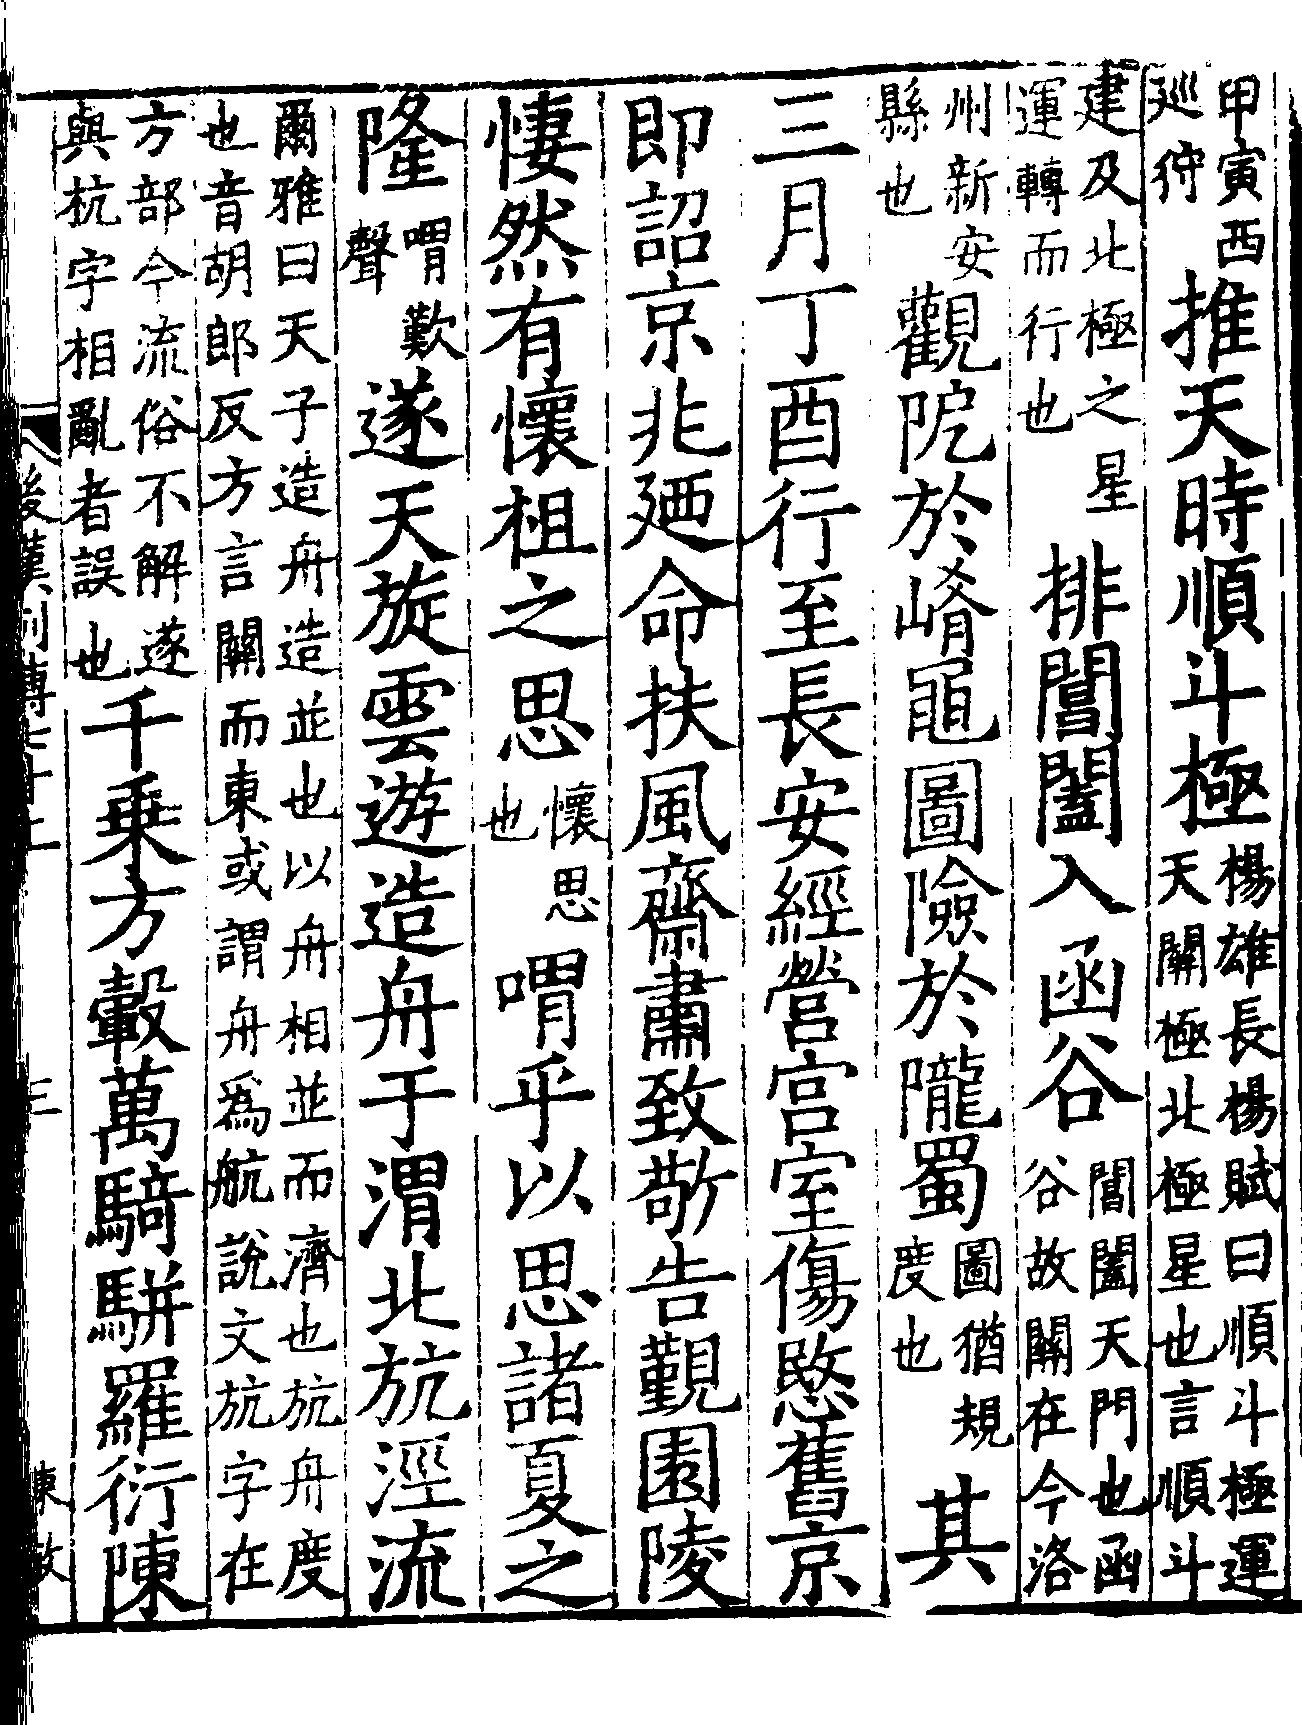 甲寅西巡狩推天時順斗極楊雄長楊賦曰順斗極運天關極北極星也言順斗
建及北極之星運轉而行也排閶闔入函谷閶闔天門也函谷故關在今洛
州新安縣也觀阸於崤黽圖險於隴蜀圖猶規度也其
三月丁酉行至長安經營宮室傷愍舊京
即詔京兆廼命扶風齋肅致敬告覲園陵
悽然有懷祖之思懷思也喟乎以思諸夏之
隆喟歎聲遂天旋雲遊造舟于渭北斻涇流
爾雅曰天子造舟造並也以舟相並而濟也斻舟度也音胡郎反方言關而東或謂舟爲航說文斻字在
方部今流俗不解遂與杭字相亂者誤也千乗方轂萬騎駢羅衍陳
後漢列傳七十上
三